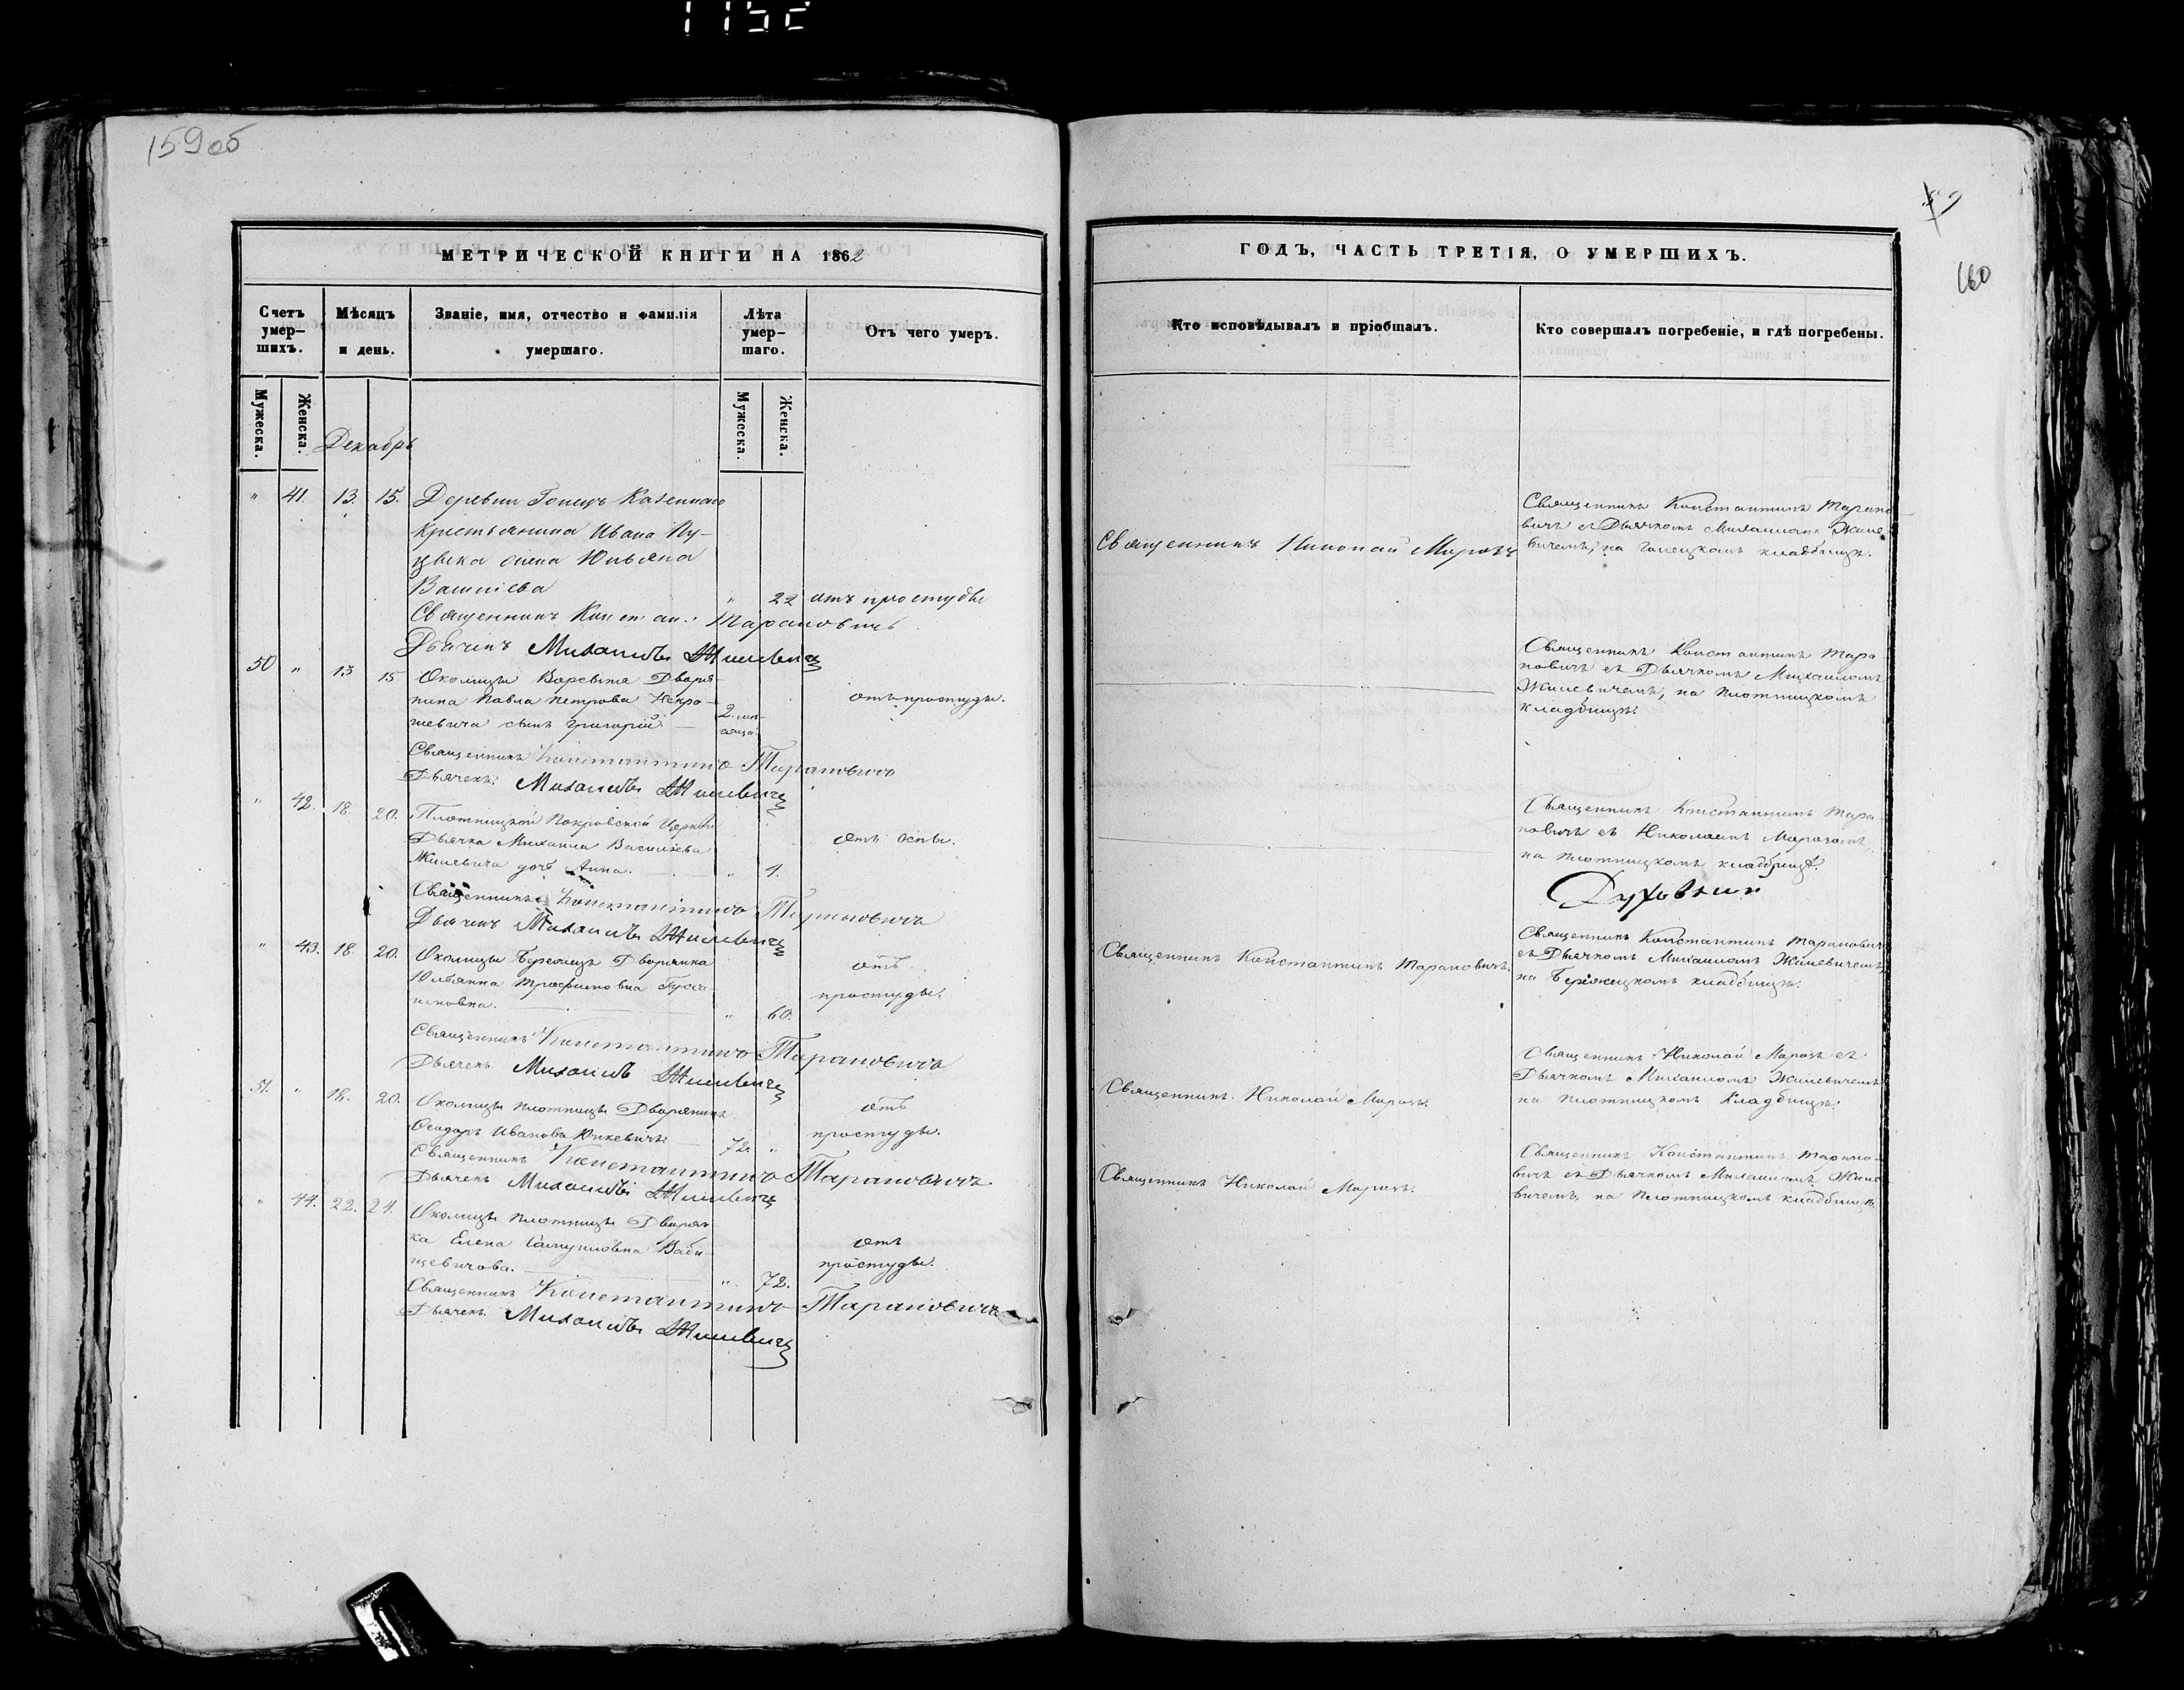 1152
159об
МЕТРИЧЕСКОЙ КНИГИ НА 1862
Счетъ умер-
шихъ.
Мѣсяцъ
и день.
Званіе, имя, отчество и фамилія
умершаго.
Лѣта
умер-
шаго.
Отъ чего умеръ.
Мужеска.
Женска.
Мужеска.
Женска.
Декабрь
" 41. 13. 15. Деревни Гонецъ Казеннаго
крестьянина Ивана
жена Юльяна
" 22 отъ простуды
Священникъ Констан. Тарановичъ
Дьячекъ Михаилъ Жилевичъ
50 " 13 15 Околицы Дворя-
нина Павла Петрова Некра-
шевича сынъ Григорій. 2. отъ простуды.
Священникъ Константинъ Тарановичъ
Дьячекъ Михаилъ Жилевичъ
" 42. 18. 20. Плотницкой Покровской Церкви
Дьячка Михаила Васильева
Жилевича дочь Анна. " 1. отъ оспы.
Священникъ Константинъ Тарановичъ
Дьячекъ Михаилъ Жилевичъ
" 43. 18. 20. Околицы Дворянка
Юльянна Трофимовна
" 60. отъ
простуды.
Священникъ Константинъ Тарановичъ
Дьячекъ Михаилъ Жилевичъ
51. " 18. 20. Околицы Плотницы Дворянинъ
Ѳеодоръ Ивановъ Юнкевичъ 72. " отъ
простуды.
Священникъ Константинъ Тарановичъ
Дьячекъ Михаилъ Жилевичъ
" 44. 22. 24. Околицы Плотницы Дворян-
ка Елена Самуиловна
" 72. отъ
простуды.
Священникъ Константинъ Тарановичъ
Дьячекъ Михаилъ Жилевичъ
160
ГОДЪ, ЧАСТЬ ТРЕТІЯ, О УМЕРШИХЪ.
Кто исповѣдывалъ и пріобщалъ.
Кто совершалъ погребеніе, и гдѣ погребены.
Священникъ Николай Марозъ
Священникъ Константинъ Тарано
вичъ съ Дьячкомъ Михаиломъ Жиле
вичемъ, на Гонецкомъ кладбищѣ.
Священникъ Константинъ Тара
новичъ съ Дьячкомъ Михаиломъ
Жилевичемъ, на Плотницкомъ
кладбищѣ.
Священникъ Константинъ Тара
новичъ съ Николаемъ Марозомъ,
на Плотницкомъ кладбищѣ.
Священникъ Константинъ Тарановичъ.
Священникъ Константинъ Тарановичъ
съ Дьячкомъ Михаиломъ Жилевичемъ,
на Бережецкомъ кладбищѣ.
Священникъ Николай Марозъ.
Священникъ Николай Марозъ съ
Дьячкомъ Михаиломъ Жилевичемъ
на Плотницкомъ кладбищѣ.
Священникъ Николай Марозъ.
Священникъ Константинъ Тарано-
вичъ съ Дьячкомъ Михаиломъ Жиле
вичемъ, на Плотницкомъ кладбищѣ